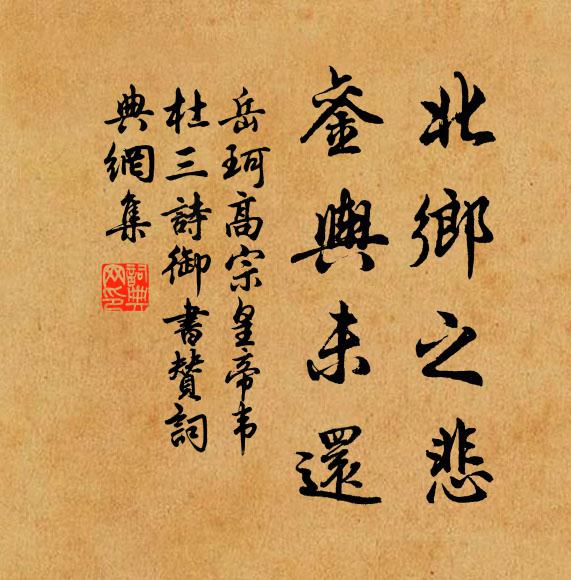 北鄉之悲
鑾輿未還
岳珂高宗皇帝韦
杜三詩御書贊詞
典網集
詞典網印